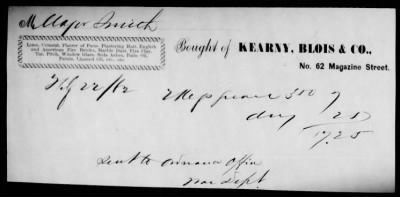 M Major Smith
Bought of KEARNY, BLOIS & CO.,
No. 62 Magazine Street.
Lime, Cement, Plaster of Paris, Plastering Hair, English
and American Fire Bricks, Marble Dust, Fire Clay,
Tar, Pitch, Window Glass,
Putty, Linseed Oil, etc., etc.
22/62 2 Kegs 350 7
dray 25
17.25
Sent to Ordnance Office
War Dept.